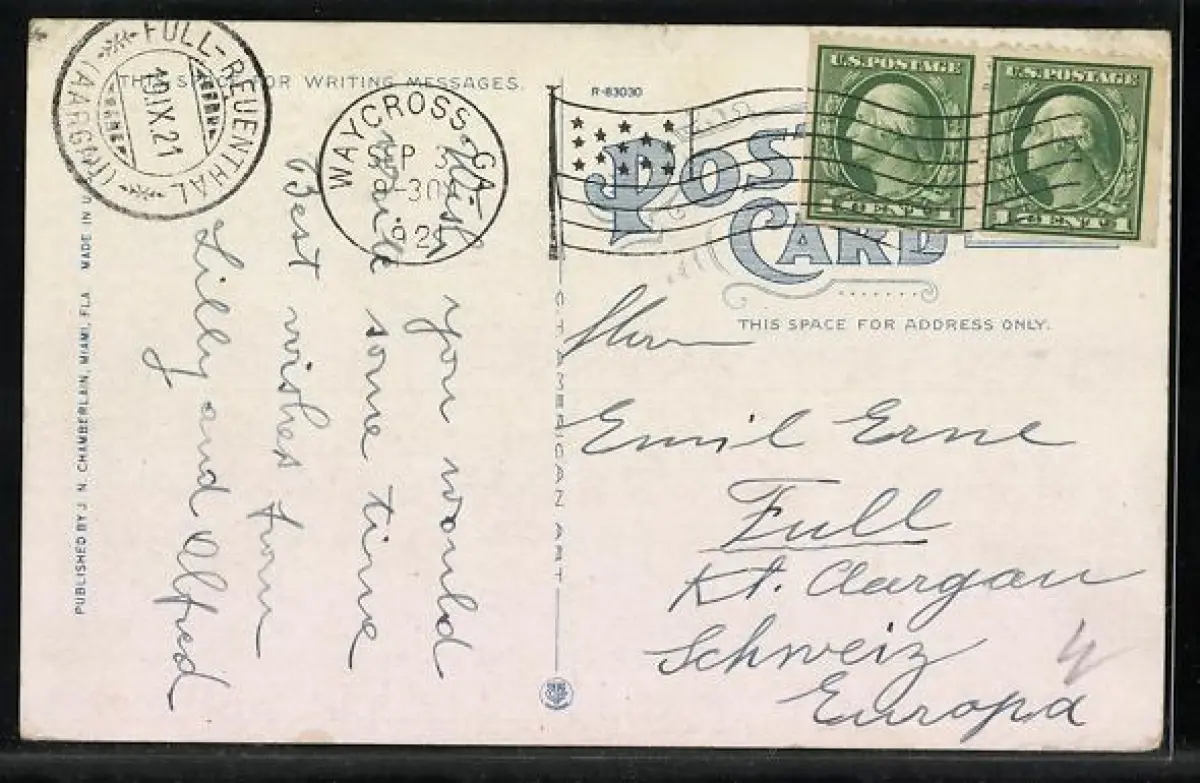 FULL-REUENTHAL
(AARGAU)
10.IX.21
THIS SPACE FOR WRITING MESSAGES.
WAYCROSS, GA.
SEP 3
-30
1921
Wish you would
write some time
Best wishes from
Lilly and Alfred
PUBLISHED BY J. N. CHAMBERLAIN, MIAMI, FLA MADE IN U
C.T. AMERICAN ART
R-83030
POST
CARD
U.S. POSTAGE
1 CENT 1
U.S. POSTAGE
1 CENT 1
THIS SPACE FOR ADDRESS ONLY.
Herrn
Emil Erne
Full
Kt. Aargau
Schweiz
Europa